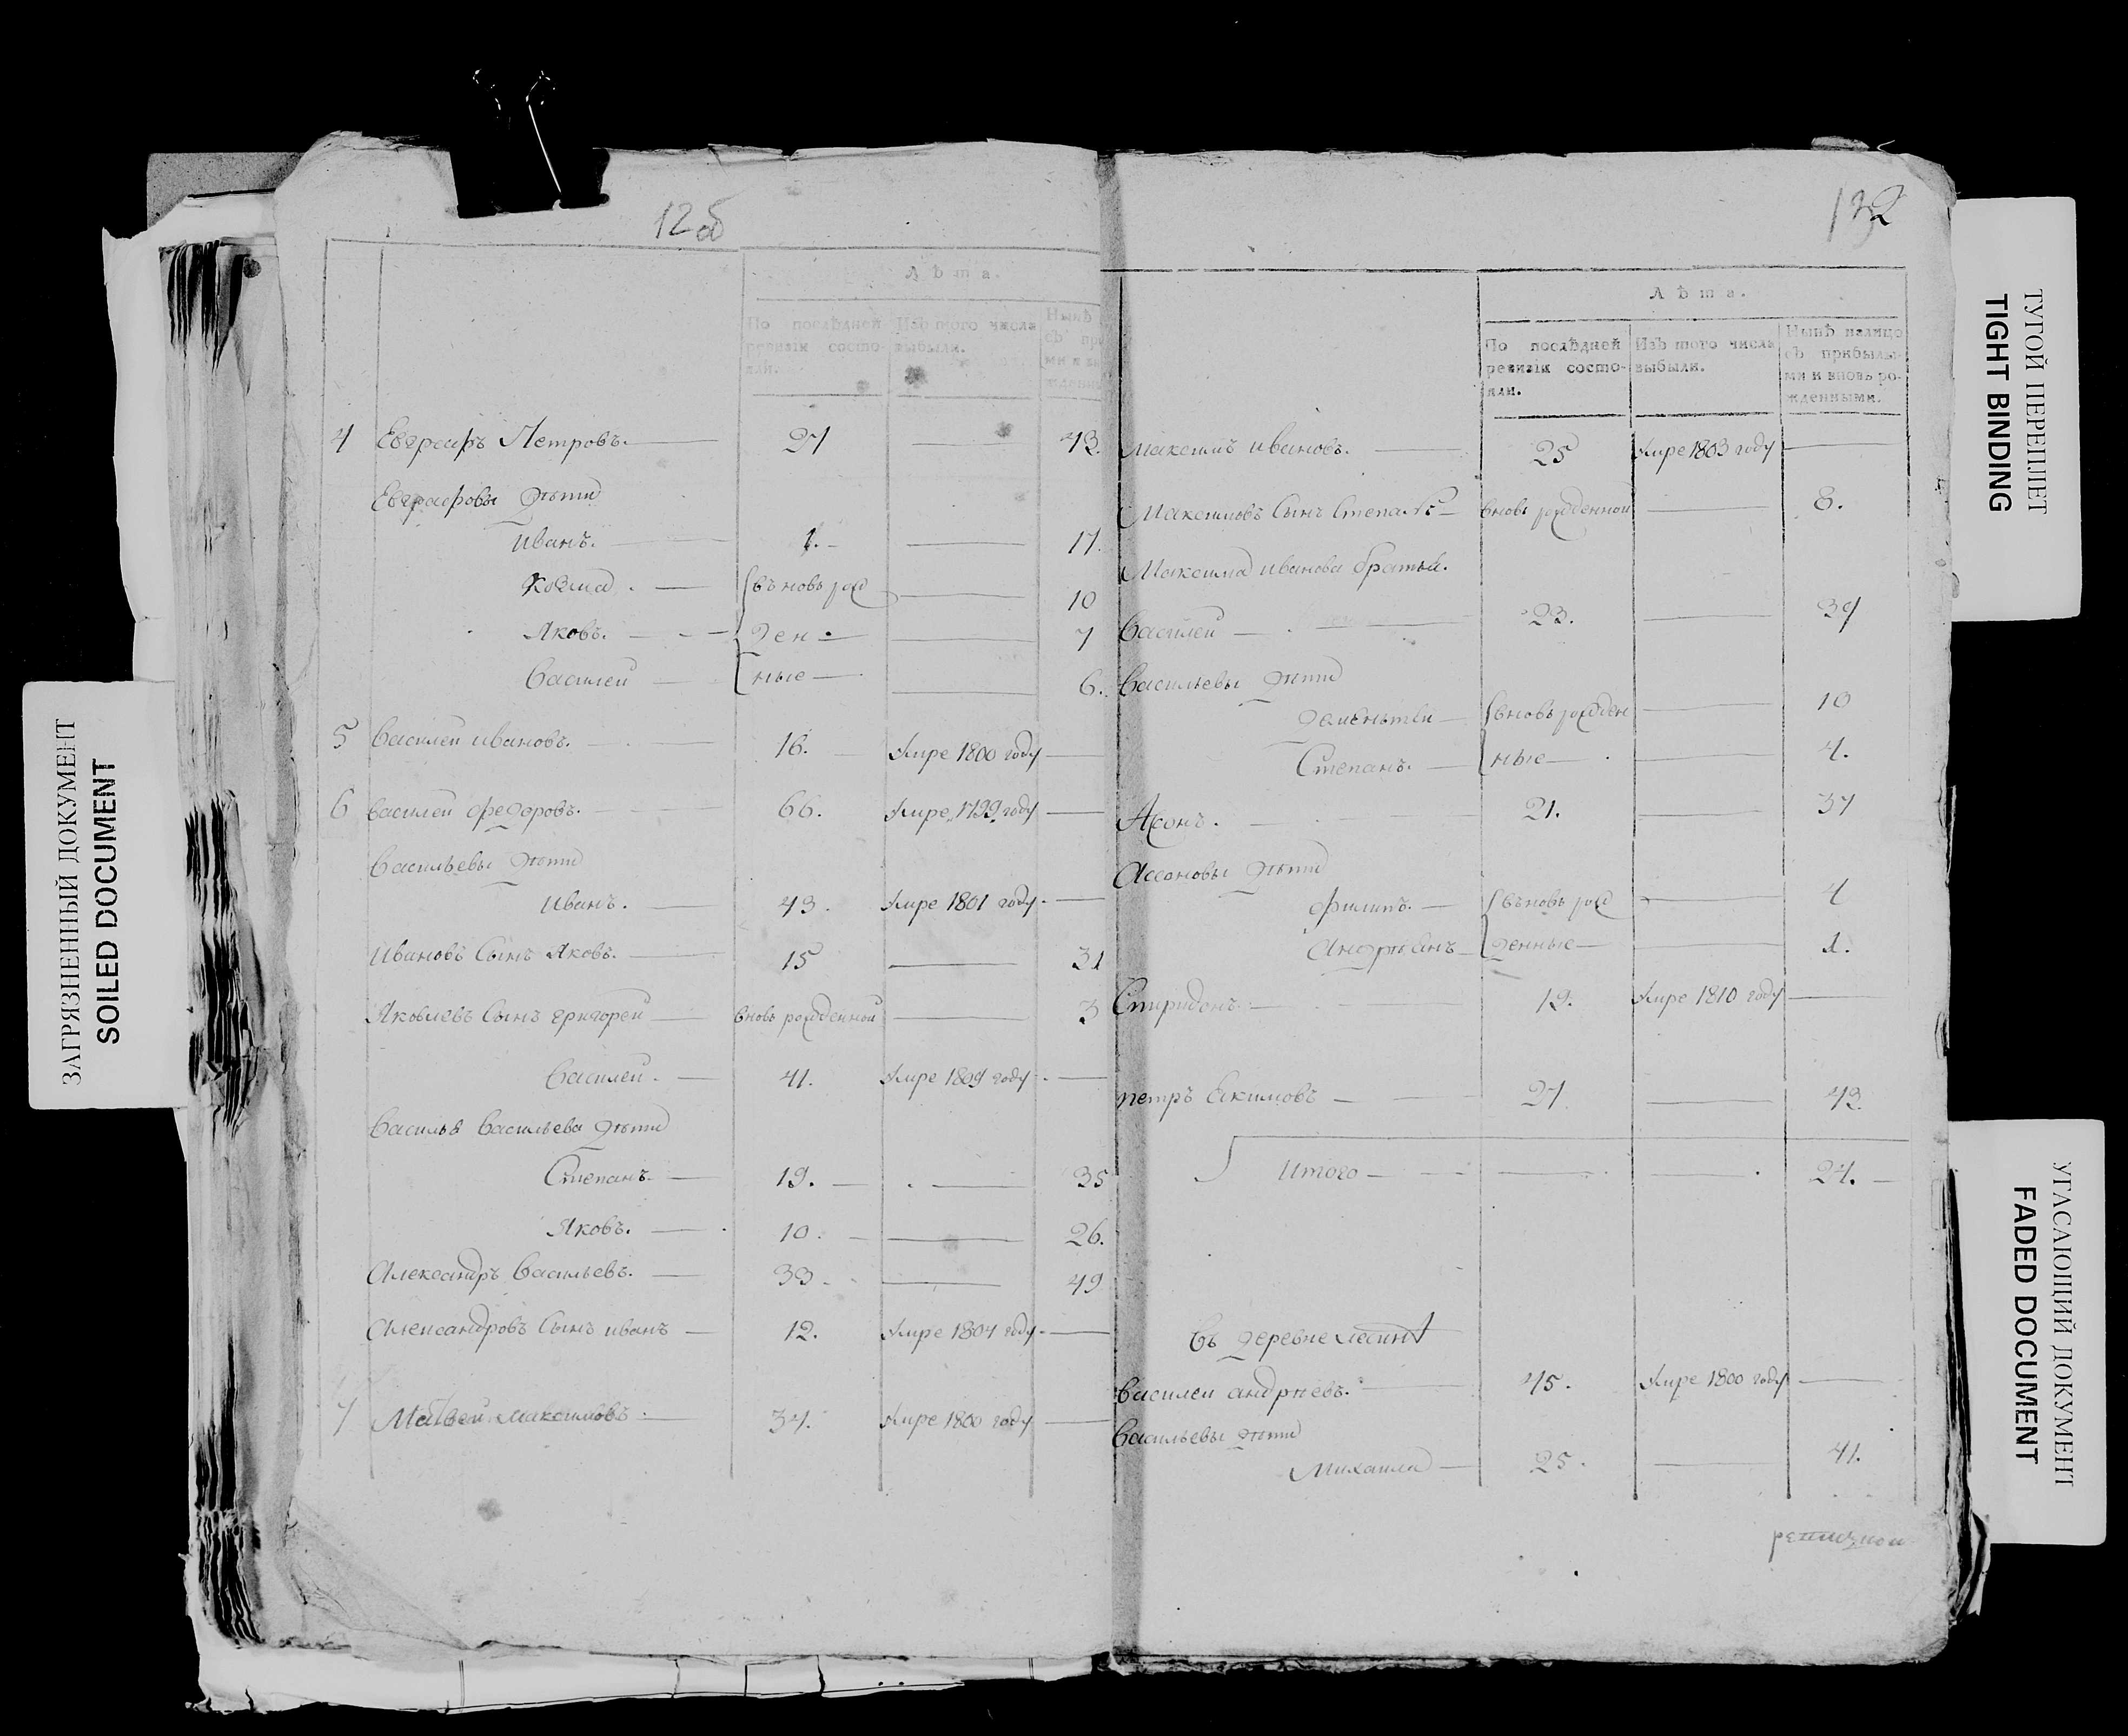 12об
Лѣта.
По послѣдней ревизіи состояли.
Изъ того числа выбыли.
Нынѣ
4 Евграфъ Петровъ. 27 — 43.
Евграфовы дѣти
Иванъ. 1. — 17.
Козма. въновь рож — 10
Яковъ. ден — 7
Василей ные — 6.
5 Василей ивановъ. 16. умре 1800 году —
6 василей федоровъ. 66. умре 1799 году —
Васильевы дѣти
Иванъ. 43. умре 1801 году —
Ивановъ Сынъ Яковъ. 15 — 31
Яковлевъ Сынъ григорей вновь рожденной — 3
Василей. 41. умре 1809 году —
Василья Васильева дѣти
Степанъ 19. — 35
Яковъ. 10. — 26.
Александръ Васильевъ. 33 — 49
Александровъ Сынъ иванъ 12. умре 1804 году —
7 Матвей максимовъ. 34. умре 1800 году —
132
Лѣта.
По послѣдней ревизіи состояли.
Изъ того числа выбыли.
Нынѣ налицо съ прибылыми и вновь рожденными.
Максимъ ивановъ. 25 умре 1803 году —
Максимовъ Сынъ Степанъ вновь рожденной — 8.
Максима иванова братья.
Василей 23. — 39
Васильевы дѣти
дементей вновь рожден — 10
Степанъ. ные — 4.
Асонъ. 21. — 37
Ассоновы дѣти
филипъ. въновь рож — 4
Андреянъ денные — 1.
Спиридонъ 19. умре 1810 году —
петръ Екимовъ 27 — 43
Итого — — 24.
Въ деревне
Василеи андрѣевъ. 45. умре 1800 году —
Васильевы дѣти
Михаила 25. — 41.
ЗАГРЯЗНЕННЫЙ ДОКУМЕНТ
SOILED DOCUMENT
ТУГОЙ ПЕРЕПЛЕТ
TIGHT BINDING
УГАСАЮЩИЙ ДОКУМЕНТ
FADED DOCUMENT